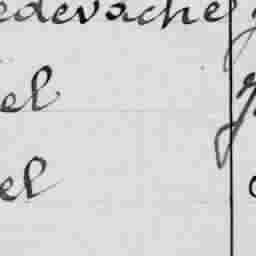 edevache
el
el